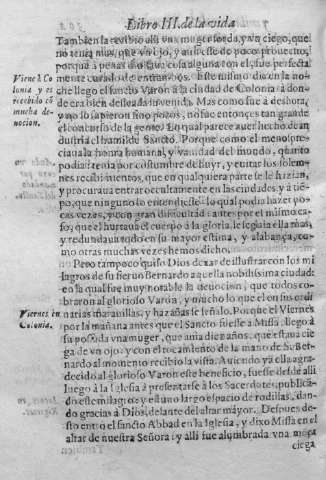 Libro III. de la vida
Tambien la recibio alli vna muger sorda, y vn ciego, que
no tenia mas que vn ojo, y aun esse de poco prouecho,
porque a penas diuisaua cosa alguna con el, fue perfecta
mente curado de entrambos. Este mismo dia en la no
che llego el santo Varon à la ciudad de Colonia a don-
de era bien desseada su venida. Mas como fue a deshora,
y no lo supieron sino pocos, no fue entonces tan grande
el concurso de la gente. Lo qual parece auer hecho de in
dustria el humilde Santo. Porque como el menospre
ciaua la honra humana, y vanidad del mundo, quanto
podia tenia por costumbre de huyr, y euitar los solem-
nes recibimientos, que en qualquiera parte se le hazian,
y procuraua entrar occultamente en las ciudades, y à tiē-
po, que ninguno lo entendiesse: lo qual podia hazer po-
cas vezes, y con gran dificultad: antes por el mismo ca-
so, que el hurtaua el cuerpo a la gloria, le seguia ella mas,
y redundaua todo en su mayor estima, y alabança, co-
mo otras muchas vezes hemos dicho.
Pero tampoco quiso Dios dexar de illustrar con los mi
lagros de su sieruo Bernardo aquella nobilissima ciudad:
en la qual fue muy notable la deuocion, que todos co-
braron al glorioso Varon, y mucho lo que el en sus ordi
narias marauillas, y hazañas se señalo. Porque el Viernes
por la mañana antes que el Santo fuesse a Missa, llegò à
su posada vna muger, que auia diez años, que estaua cie
ga de vn ojo: y con el tocamiento de la mano de S. Ber-
nardo al momento recibio la vista. Auiendo ya ella agra-
decido al glorioso Varon este beneficio, fuesse desde alli
luego à la Iglesia à presentarse à los Sacerdotes, publicā-
do este milagro: y estuuo largo espacio de rodillas, dan-
do gracias à Dios, delante del altar mayor. Despues des-
to entro el santo Abbad en la Iglesia, y dixo Missa en el
altar de nuestra Señora: y alli fue alumbrada vna moça
ciega
Viene à Co
lonia y es
recebido cō
mucha de-
uocion.
Viernes en
Colonia.